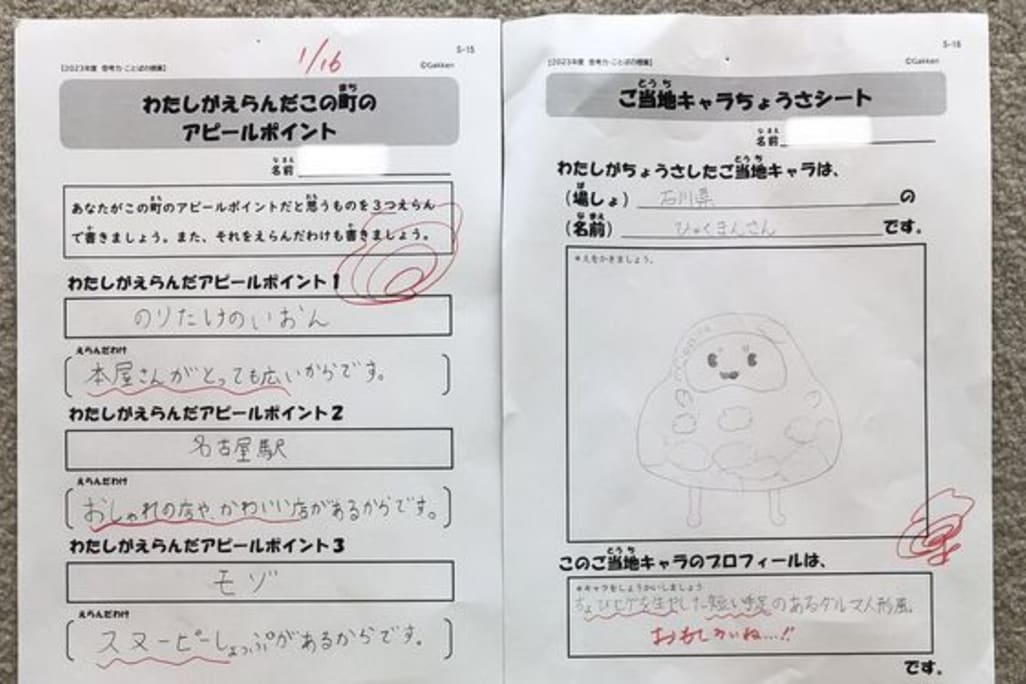 S-15
1/16
【2023年度 思考力・ことばの授業】
©Gakken
わたしがえらんだこの町のまち
アピールポイント
名前なまえ
あなたがこの町のアピールポイントだと思うものを3つえらん
で書きましょう。また、それをえらんだわけも書きましょう。
わたしがえらんだアピールポイント1
のりたけのいおん
えらんだわけ
本屋さんがとっても広いからです。
わたしがえらんだアピールポイント2
名古屋駅
えらんだわけ
おしゃれの店や、かわいい店があるからです。
わたしがえらんだアピールポイント3
モゾ
えらんだわけ
スヌーピーしょっぷがあるからです。
S-16
©Gakken
ご当地キャラちょうさシート
名前
わたしがちょうさしたご当地キャラは、
(場しょ) 石川県 の
(名前) ひゃくまんさん です。
*えをかきましょう。
このご当地キャラのプロフィールは、
*キャラをしょうかいしましょう
ちょびヒゲを生やした短い手足のあるダルマ人形風。
おもしろいね…!!
です。